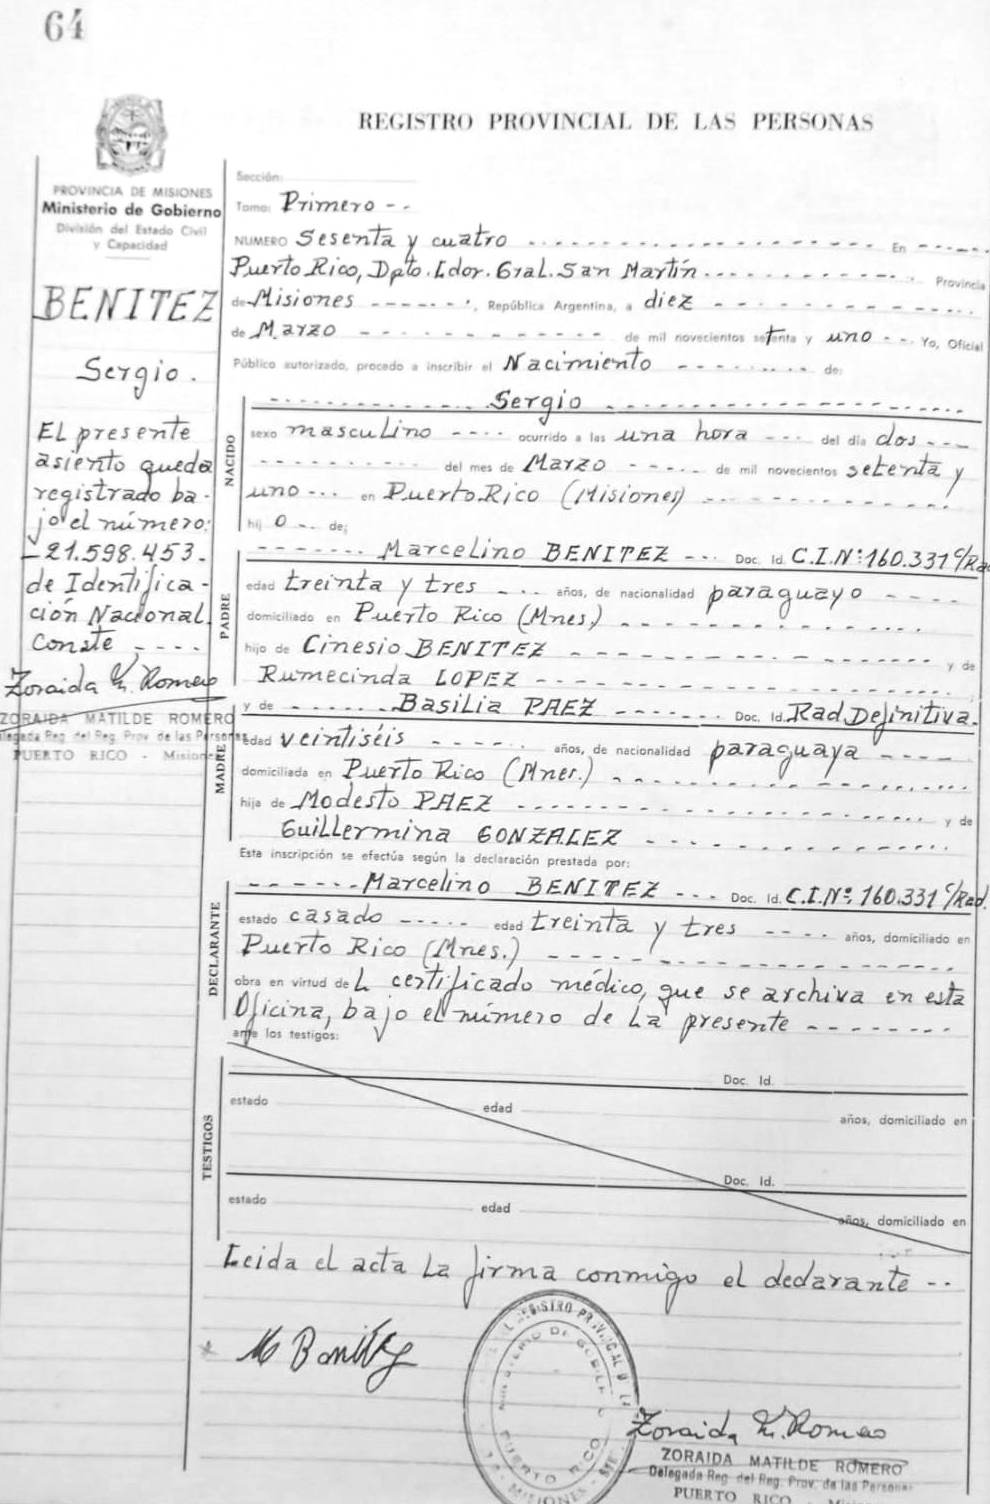 64
REGISTRO PROVINCIAL DE LAS PERSONAS
PROVINCIA DE MISIONES
Ministerio de Gobierno
División del Estado Civil
y Capacidad
BENITEZ
Sergio.
EL presente
asiento queda
registrado ba-
jo el número:
-21.598.453-
de Identifica-
ción Nacional.
Conste, ----
Zoraida M. Romero
ZORAIDA MATILDE ROMERO
Delegada Reg. del Reg. Prov. de las Personas
PUERTO RICO - Misiones
Sección:
Tomo: Primero --
NUMERO Sesenta y cuatro ---- En ----
Puerto Rico, Dpto. Ldor. Gral. San Martín ---- Provincia
de Misiones ----, República Argentina, a diez ----
de Marzo ---- de mil novecientos setenta y uno -- Yo, Oficial
Público autorizado, procedo a inscribir el Nacimiento ---- de:
NACIDO
---- Sergio ----
sexo masculino ---- ocurrido a las una hora --- del día dos ---
---- del mes de Marzo ---- de mil novecientos setenta y
uno --- en Puerto Rico (Misiones) ----
hij o -- de:
PADRE
---- Marcelino BENITEZ --- Doc. Id. C.I.Nº:160.331 c/Rad
edad treinta y tres --- años, de nacionalidad paraguayo ----
domiciliado en Puerto Rico (Mnes.) ----
hijo de Cinesio BENITEZ ---- y de
Rumecinda LOPEZ ----
MADRE
y de ---- Basilia PAEZ ---- Doc. Id. Rad. Definitiva.
edad veintiséis ---- años, de nacionalidad paraguaya ----
domiciliada en Puerto Rico (Mnes.) ----
hija de Modesto PAEZ ---- y de
Guillermina GONZALEZ ----
Esta inscripción se efectúa según la declaración prestada por:
DECLARANTE
---- Marcelino BENITEZ --- Doc. Id. C.I.Nº: 160.331 c/Rad.
estado casado ---- edad treinta y tres ---- años, domiciliado en
Puerto Rico (Mnes.) ----
obra en virtud de L certificado médico, que se archiva en esta
Oficina, bajo el número de La presente ----
ante los testigos:
TESTIGOS
Doc. Id.
estado edad años, domiciliado en
Doc. Id.
estado edad años, domiciliado en
Leida el acta La firma conmigo el declarante --
M Benitez
REGISTRO PROVINCIAL
PUERTO RICO
MISIONES
Zoraida M. Romero
ZORAIDA MATILDE ROMERO
Delegada Reg. del Reg. Prov. de las Personas
PUERTO RICO - Misiones